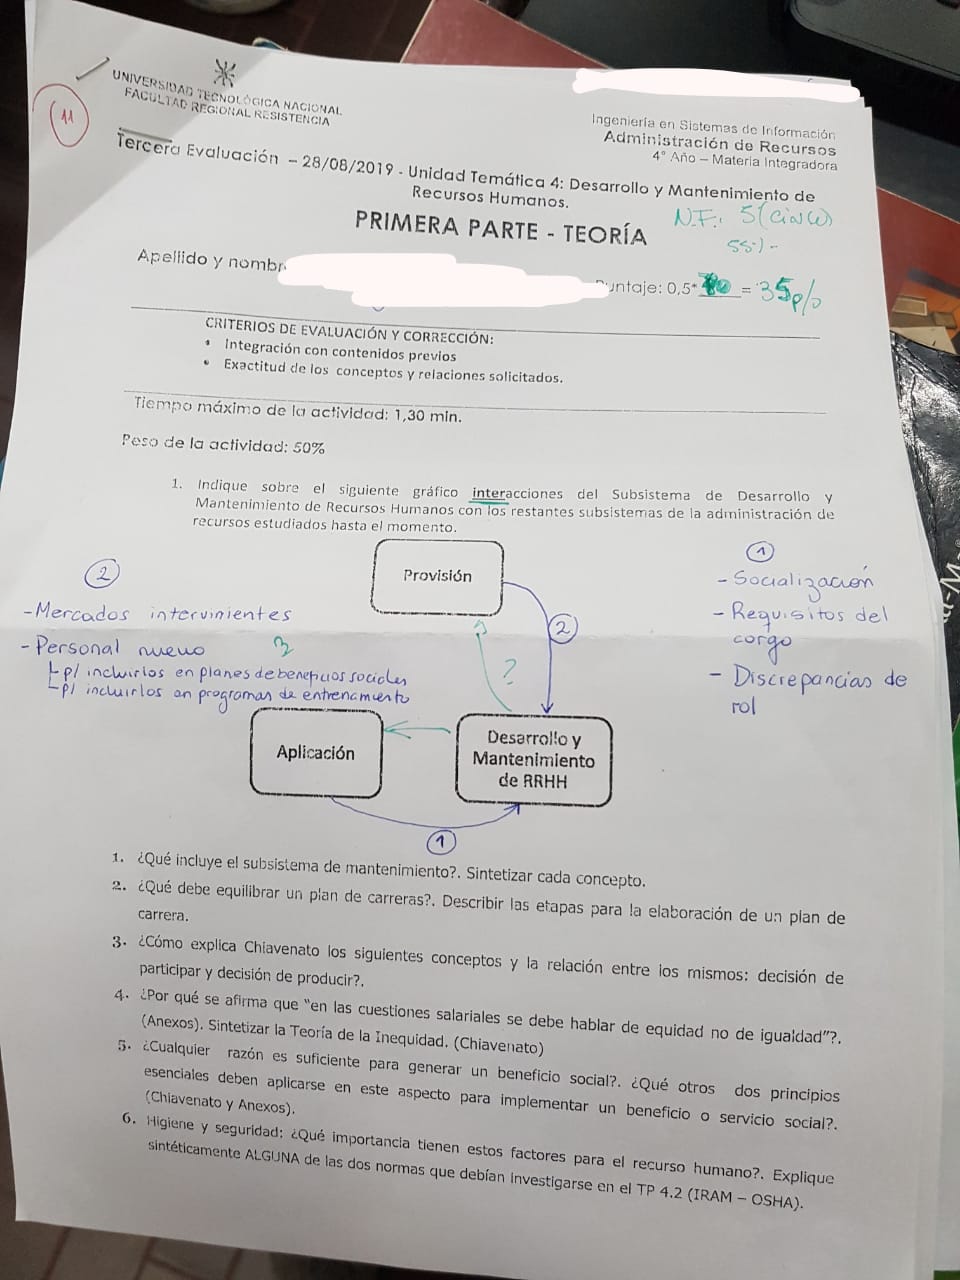 11
UNIVERSIDAD TECNOLÓGICA NACIONAL
FACULTAD REGIONAL RESISTENCIA
Ingeniería en Sistemas de Información
Administración de Recursos
4° Año – Materia Integradora
Tercera Evaluación – 28/08/2019 - Unidad Temática 4: Desarrollo y Mantenimiento de
Recursos Humanos.
N.F.: 5 (cinco)
55%-
PRIMERA PARTE - TEORÍA
Apellido y nombr
Puntaje: 0,5* 70 = 35 p/o
CRITERIOS DE EVALUACIÓN Y CORRECCIÓN:
• Integración con contenidos previos
• Exactitud de los conceptos y relaciones solicitados.
Tiempo máximo de la actividad: 1,30 min.
Peso de la actividad: 50%
1. Indique sobre el siguiente gráfico interacciones del Subsistema de Desarrollo y
Mantenimiento de Recursos Humanos con los restantes subsistemas de la administración de
recursos estudiados hasta el momento.
2
- Mercados intervinientes
- Personal nuevo
p/ incluirlos en planes de beneficios sociales
p/ incluirlos en programas de entrenamiento
Provisión
2
?
1
- Socialización
- Requisitos del
cargo
- Discrepancias de
rol
Aplicación
Desarrollo y
Mantenimiento
de RRHH
1
1. ¿Qué incluye el subsistema de mantenimiento?. Sintetizar cada concepto.
2. ¿Qué debe equilibrar un plan de carreras?. Describir las etapas para la elaboración de un plan de
carrera.
3. ¿Cómo explica Chiavenato los siguientes conceptos y la relación entre los mismos: decisión de
participar y decisión de producir?.
4. ¿Por qué se afirma que "en las cuestiones salariales se debe hablar de equidad no de igualdad"?.
(Anexos). Sintetizar la Teoría de la Inequidad. (Chiavenato)
5. ¿Cualquier razón es suficiente para generar un beneficio social?. ¿Qué otros dos principios
esenciales deben aplicarse en este aspecto para implementar un beneficio o servicio social?.
(Chiavenato y Anexos).
6. Higiene y seguridad: ¿Qué importancia tienen estos factores para el recurso humano?. Explique
sintéticamente ALGUNA de las dos normas que debían investigarse en el TP 4.2 (IRAM – OSHA).